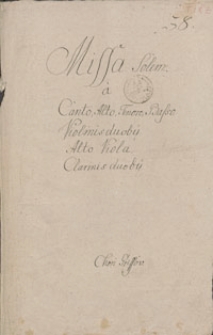 58.
Missa Solem:
à
Canto, Alto, Tenore, Basso
Violinis duobus
Alto Viola
Clarinis duobus